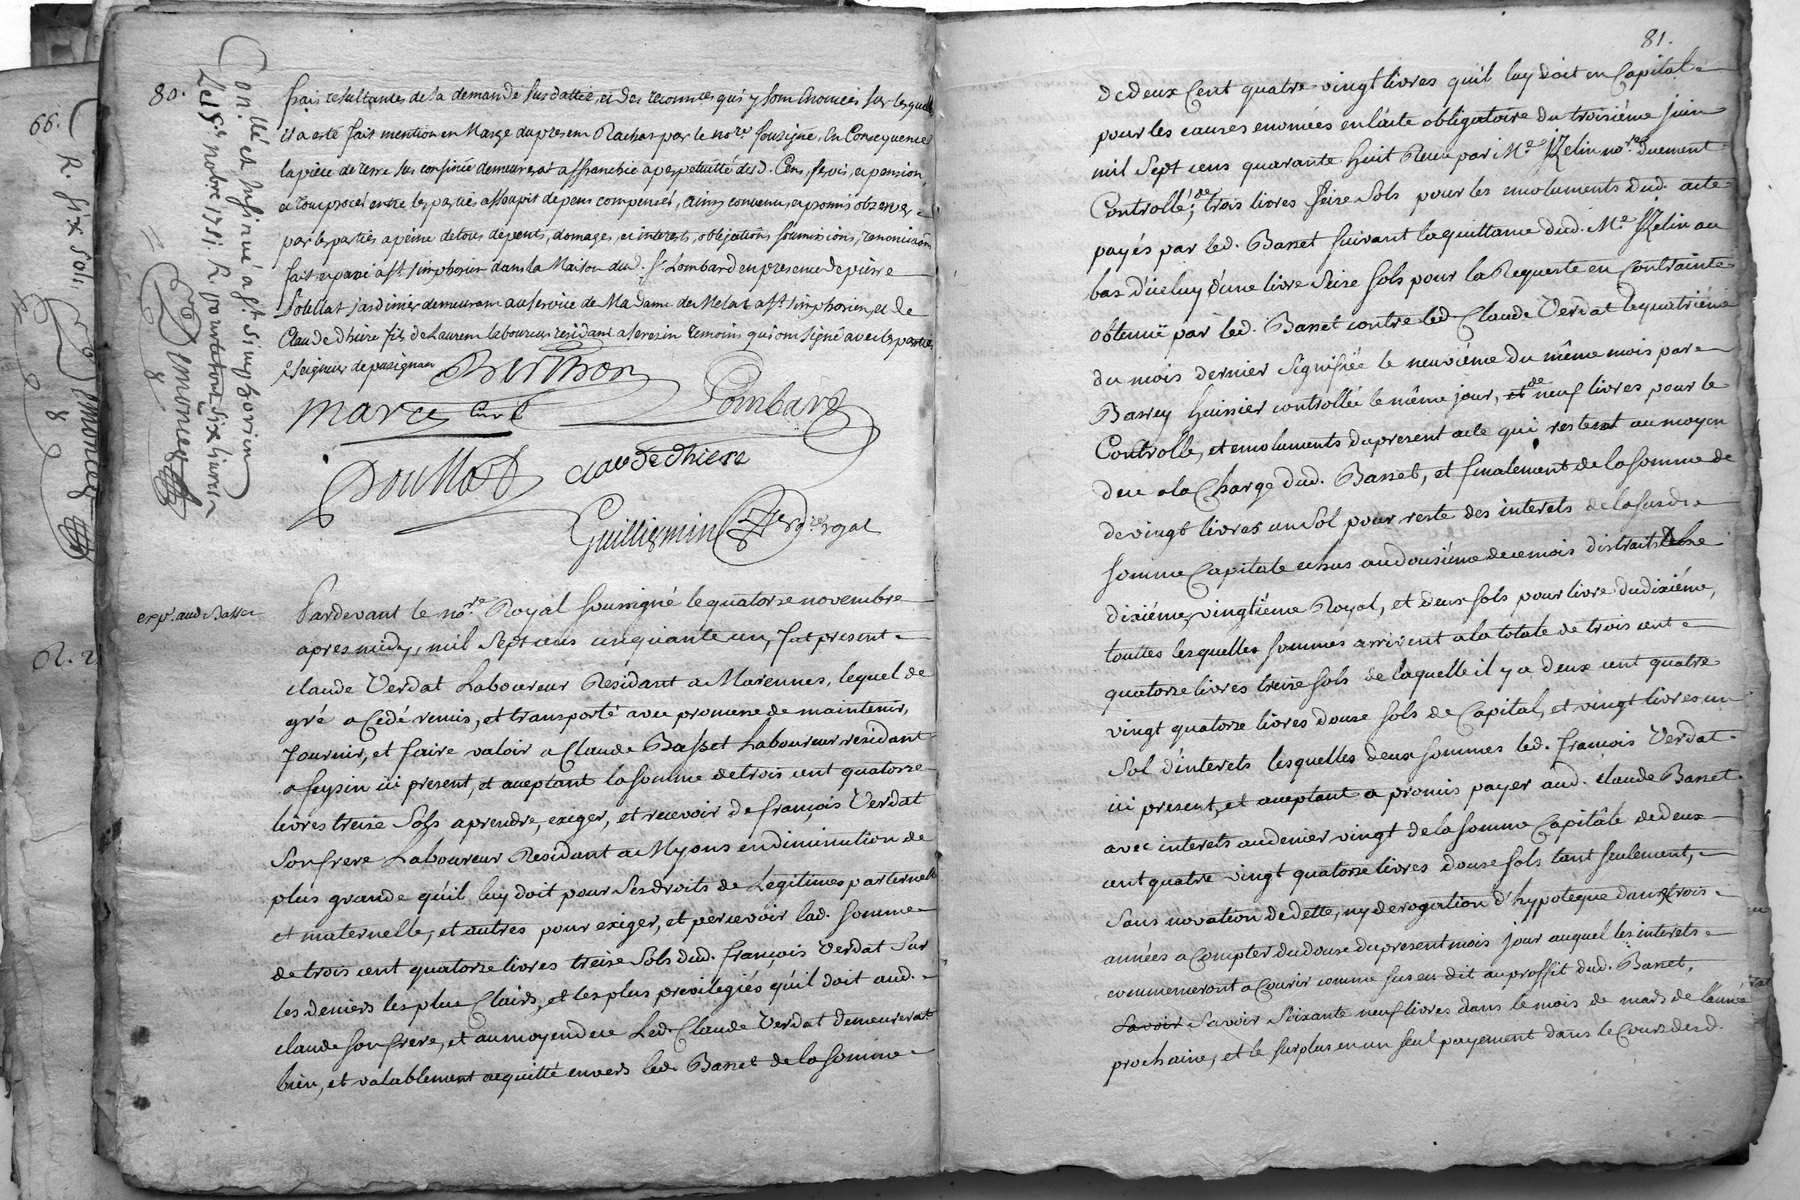 80.
frais resultantes de la demande sus dattée, et des reconnces qui y sont enoncées sur lesquelles
il a eté fait mention en Marge du present Rachat par le nore soussigné, en Consequence
la piece de terre sus confinée demeurera affranchie a perpetuitté desd. Cens, servis, et pension,
et tout procès entre les parties assoupit depens compensés, ainsy convenu, et promis observer
par les parties a peine de tous depents, domages, et interests, obligations soumissions, renonciations
fait et passé a st simphorien dans la Maison dud. sr Lombard en presence de pierre
Soullat jardinier demeurant au service de Madame de Melat a st simphorien, et de
Claude dhiere fils de Laurent laboureur residant a serezin temoins qui ont signé avec les parties
Berthon
Marce curé
Lombard
Soullat
claude dhiere
Guilliermin nore royal
Conllé et insinué a st. simphorien
Le 18e nobre 1751. R.
six livres
expé. aud. Basset
Pardevant le nore. Royal soussigné le quatorze novembre
apres midy, mil sept cens cinquante un, fut present
claude Verdat Laboureur Residant a Marennes, lequel de
gré a Cedé remis, et transporté avec promesse de maintenir,
fournir, et faire valoir a Claude Basset Laboureur residant
a feysin ici present, et aceptant la somme de trois cent quatorze
livres treize sols a prendre, exiger, et recevoir de françois Verdat
son frere Laboureur Residant a Myons en diminution de
plus grande qu'il luy doit pour ses droits de Legitimes parternelle
et maternelle, et autres pour exiger, et percevoir lad. somme
de trois cent quatorze livres treize sols dud. françois Verdat sur
les deniers les plus Clairs, et les plus previlegiés qu'il doit aud.
claude son frere, et au moyen de ce Led. Claude Verdat demeurerat
bien, et valablement acquitté envers led. Basset de la somme
81.
de deux Cent quatre vingt livres qu'il luy doit en Capital
pour les causes enoncées en l'acte obligatoire du troisiéme juin
mil sept cens quarante huit Receu par Me nore duement
Controllé, de trois livres seize sols pour les emoluments dud. acte
payés par led. Basset suivant la quittance dud. Me au
bas d'iceluy d'une livre seize sols pour la Requeste en Contrainte
obtenuë par led. Basset contre led. Claude Verdat le quatriéme
du mois dernier signifiée le neuviéme du même mois par
Bassey huissier controllée le même jour, de neuf livres pour le
Controlle, et emoluments du present acte qui restent au moyen
de ce a la Charge dud. Basset, et finalement de la somme de
de vingt livres un sol pour reste des interets de la susd.
somme Capitale echus au dousiéme de ce mois distraits le
dixiéme, vingtiéme Royal, et deux sols pour livre du dixiéme,
touttes lesquelles sommes arrivent a la totale de trois cent
quatorze livres treize sols de laquelle il y a deux cent quatre
vingt quatorze livres douse sols de Capital, et vingt livres un
sol d'interets lesquelles deux sommes led. françois Verdat
ici present, et aceptant a promis payer aud. claude Basset
avec interets au denier vingt de la somme Capitâle de deux
cent quatre vingt quatorze livres douse sols tant seulement,
sans novation de dette, ny derogation d'hypoteque dans trois
années a Compter du douse du present mois jour auquel les interets
commenceront a Courir comme sus est dit au proffit dud. Basset,
Savoir Savoir Soixante neuf livres dans le mois de mars de l'année
prochaine, et le surplus en un seul payement dans le Cours desd.
66.
R. six sols